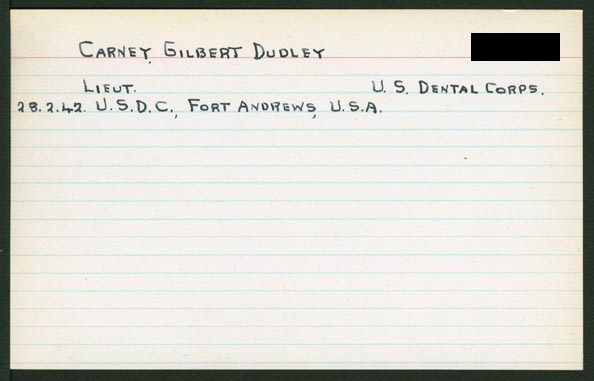 CARNEY, GILBERT DUDLEY
LIEUT. U.S. DENTAL CORPS.
28.2.42. U.S.D.C., FORT ANDREWS, U.S.A.